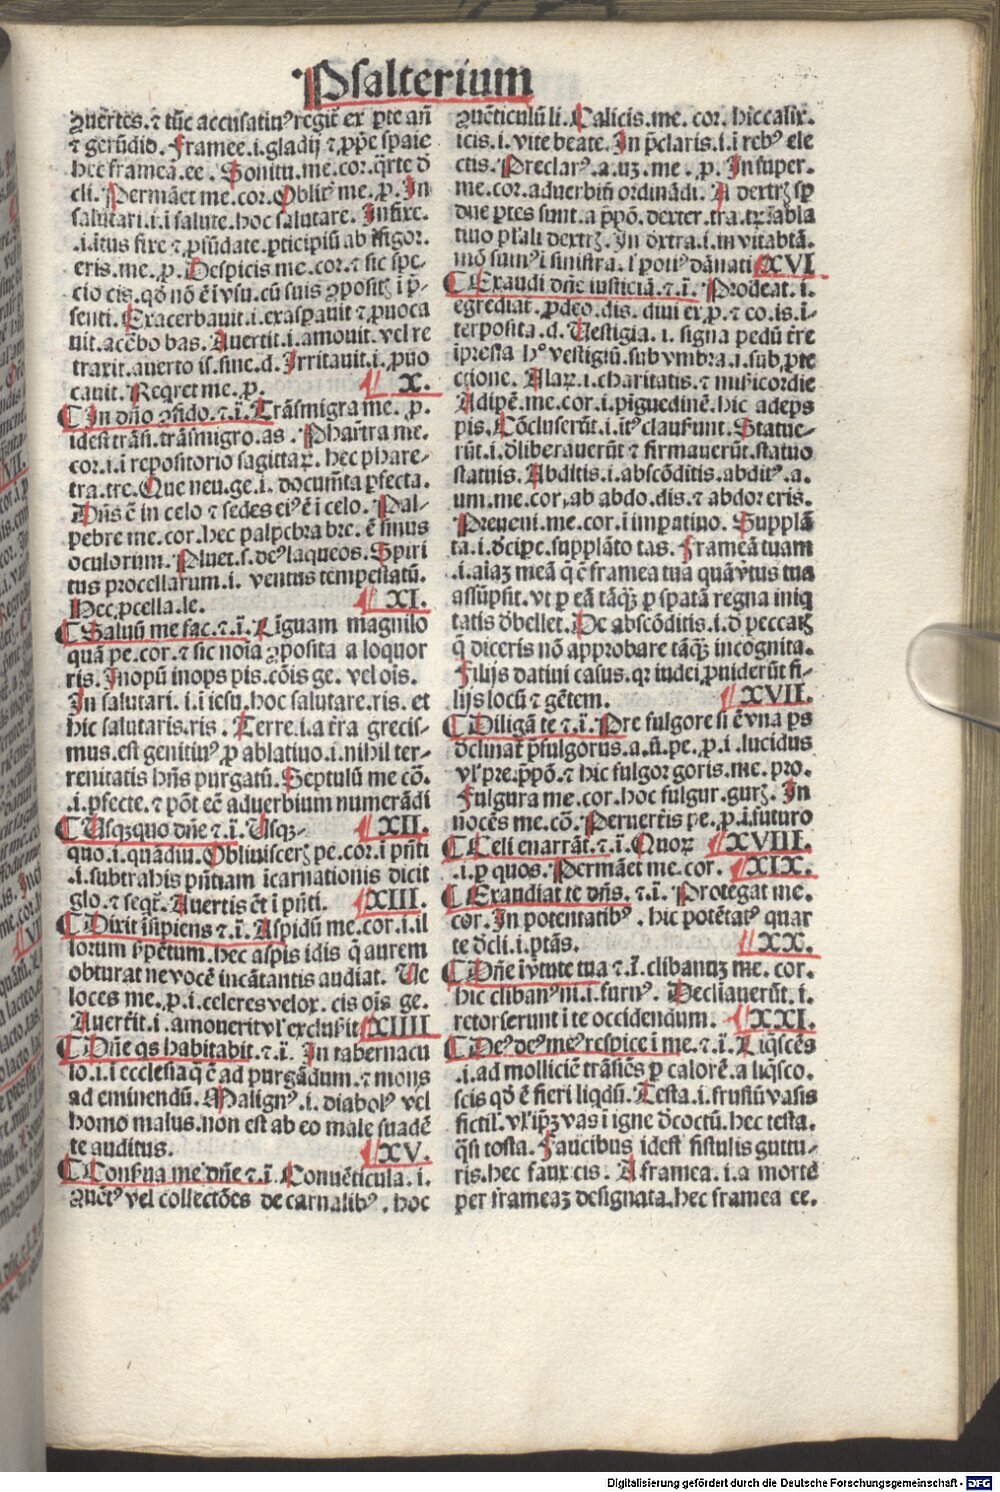 Psalterium
ꝯuertes. ⁊ tūc accusatiuꝰ regit̄ ex ꝑte an̄
⁊ gerūdiō. Framee .i. gladij ⁊ ꝓpe spaie
hec framea. ee. Sonitu. me. cor. qrte d̄
cli. Permāet me. cor. Oblitꝰ me. ꝑ. In
salutari .i. ī salute. hoc salutare. Infixe.
.i. itus fixe ⁊ ꝓfūdate. ꝑticipiū ab īfigor.
eris. me. ꝑ. Despicis me. cor. ⁊ sic spe-
cio cis. qd̄ nō ē ī vsu. cū suis ꝯpositꝭ ī p̄-
senti. Exacerbauit .i. exaspauit ⁊ ꝓuoca
uit. acerbo bas. Auertit .i. amouit. vel re
traxit. auerto is. sine. d. Irritauit .i. ꝓuo
cauit. Reqret me. ꝑ. X.
In dn̄o ꝯfido. ⁊. ī. Trāsmigra me. ꝑ.
idest trāsi. trāsmigro. as. Pharetra me.
cor. i. ī repositorio sagittaꝝ. hec phare-
tra. tre. Que neu. ge. i. documēta ꝑfecta.
Dn̄s ē in celo ⁊ sedes eiꝰ ē ī celo. Pal-
pebre me. cor. hec palpebra bre. ē sinus
oculorum. Pluet. s. deꝰ laqueos. Spiri
tus procellarum .i. ventus tempestatū.
Hec ꝓcella. le. XI.
Saluū me fac. ⁊. ī. Līguam magnilo
quā pe. cor. ⁊ sic noīa ꝯposita a loquor
ris. Inopū inops pis. cōis ge. vel oīs.
In salutari .i. ī iesu. hoc salutare. ris. et
hic salutaris. ris. Terre .i. a t̄ra grecis-
mus. est genitiuꝰ ꝓ ablatiuo .i. nihil ter-
renitatis hn̄s purgatū. Septulū me cō.
.i. ꝑfecte. ⁊ pōt eē aduerbium numerādi
Usqꝫquo dn̄e ⁊. ī. Usqꝫ- XII.
quo .i. quādiu. Obliuiscerꝭ pe. cor. ī pn̄ti
.i. subtrahis pn̄tiam īcarnationis dicit
glo. ⁊ seqr̄. Auertis ēt ī pn̄ti. XIII.
Dixit īsipiens ⁊. ī. Aspidū me. cor. i. il
lorum serpētum. hec aspis idis q̄ aurem
obturat ne vocē incātantis audiat. Ue
loces me. ꝑ. i. celeres velox. cis oīs ge.
Auertit .i. amouerit vl' exclusit XIIII
Dn̄e qs habitabit. ⁊. ī. In tabernacu
lo .i. ī ecclesia q̄ ē ad purgādum. ⁊ mons
ad eminendū. Malignꝰ .i. diabolꝰ vel
homo malus. non est ab eo male suadē
te auditus. XV.
Conserua me dn̄e ⁊. ī. Conuēticula .i.
ꝯuētꝰ vel collectōes de carnalibꝰ. hoc
ꝯuēticulū li. Calicis. me. cor. hic calix.
icis. i. vite beate. In p̄claris .i. ī rebꝰ ele
ctis. Preclarꝰ. a. uꝫ. me. ꝑ. Insuper.
me. cor. aduerbiū ordinādi. A dextrꝭ sꝑ
due ꝑtes sunt. a ꝓpō. dexter. tra. trꝭ abla
tiuo pl'ali dextrꝭ. In dextra .i. in vita btā.
mō sumꝰ ī sinistra. l' potiꝰ dānati XVI
Exaudi dn̄e iusticiā. ⁊. ī. Prodeat .i.
egrediat̄. ꝓdeo. dis. diui ex. p. ⁊ eo. is. i-
terposita. d. Uestigia .i. signa pedū t̄re
ipressa hꝰ vestigiū. sub vmbra .i. sub ꝓte
ctione. Alaꝝ .i. charitatis. ⁊ misicordie
Adipē. me. cor. i. piguedinē. hic adeps
pis. Cōcluserūt .i. itꝰ clauserunt. Statue-
rūt .i. d̄liberauerūt ⁊ firmauerūt. statuo
statuis. Abditis .i. abscōditis. abditꝰ. a.
um. me. cor. ab abdo. dis. ⁊ abdor eris.
Preueni. me. cor. ī impatiuo. Supplā
ta .i. d̄cipe. supplāto tas. Frameā tuam
.i. aīaꝫ meā q̄ ē framea tua quā v̄tus tua
assūpsit. vt ꝑ eā tāqꝫ ꝑ spatā regna iniq
tatis d̄bellet. De abscōditis .i. d̄ peccatꝭ
q̄ diceris nō approbare tāqꝫ incognita.
Filijs datini casus. qr iudei ꝓuiderūt fi-
lijs locū ⁊ gētem. XVII.
Diligā te ⁊. ī. Pre fulgore si ē vna ps
d̄clinat̄ p̄fulgorus. a. ū. pe. ꝑ. i. lucidus
vl' pre. ꝓpō. ⁊ hic fulgor goris. me. pro.
Fulgura me. cor. hoc fulgur. gurꝭ. In
nocēs me. cō. Peruertis pe. ꝑ. i. futuro
Celi enarrāt. ⁊. ī. Quoꝝ XVIII.
.i. ꝑ quos. Permāet me. cor. XIX.
Exaudiat te dn̄s. ⁊. ī. Protegat me.
cor. In potentatibꝰ. hic potētatꝰ quar
te d̄cli. i. ptās. XX.
Dn̄e ī v̄tute tua ⁊. ī. clibanuꝫ me. cor.
hic clibanꝰ ni. i. furnꝰ. Declīauerūt .i.
retorserunt ī te occidendum. XXI.
Deꝰ deꝰ meꝰ respice ī me. ⁊. ī. Liqscēs
.i. ad molliciē trāsiēs ꝑ calorē. a liqsco.
scis qd̄ ē fieri liqdū. Testa .i. frustū vasis
fictil'. vl' ipꝫ vas ī igne d̄coctū. hec testa.
qsi tosta. Faucibus idest fistulis guttu-
ris. hec faux cis. A framea .i. a morte
per frameaꝫ designata. hec framea ee.
Digitalisierung gefördert durch die Deutsche Forschungsgemeinschaft - DFG